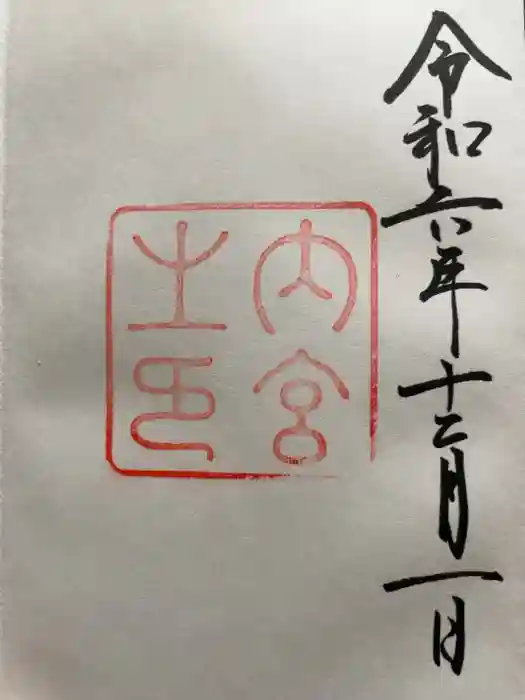 令和六年十二月一日
内宮
之印